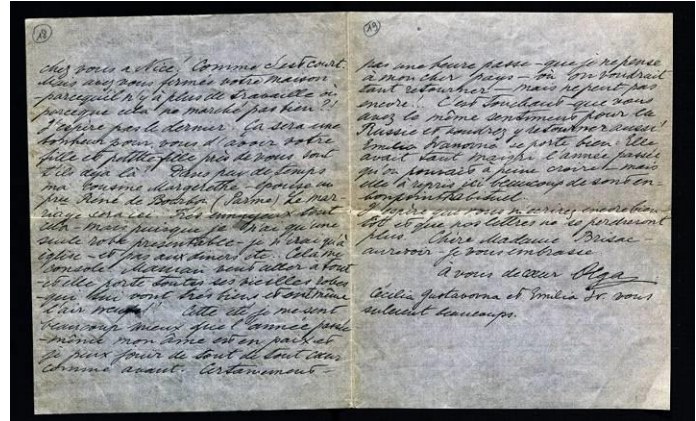 18
chez vous a Nice! Comme c'est court.
Mais avez vous firmée votre maison
parcequ'il n'y a plus de travaille ou
parceque cela ne marche pas bien?!
J'espère pas le dernier. Ça sera une
bonheur pour vous d'avoir votre
fille et petite fille près de vous. Sont
t'ils déja là? Dans peu de temps
ma cousine Margerethe épouse un
pr. René de Bourbon (Parme) Le mar-
riage sera ici. Très ennuyeux tout
cela - mais puisque je n'ai qu'une
seule robe présentable - je n'irai qu'à
église - et pas aux diners etc. Cela me
console! Maman veut aller a tout
- et elle porte toutes ses vieilles robes
- qui lui vont très biens et ont même
l'air neuf!! Cette été je me sent
beaucoup mieux que l'année passée
- même mon âme est en paix et
je peux jouir de tout de tout cœur
comme avant. Certainement -
19
pas une heure passe - que je ne pense
à mon cher pays - où on voudrait
tant retourner - mais ne peut pas
encore! C'est touchant - que vous
avez le même sentiment pour la
Russie et voudrez y retourner aussi!
Emilia Ivanovna se porte bien. Elle
avait tant maigri l'année passée
qu'on pouvait a peine croire - mais
elle à repris ici beaucoup de sont en-
bonpoint habituel.
J'espère que vous m'écrirez encore bien-
tôt et que nos lettres ne se perdreront
plus. Chère Madame Brisac -
aurevoir - je vous embrasse
à vous de cœur Olga
Cécilia Gustavovna et Emilia Iv. vous
saluent beaucoups.